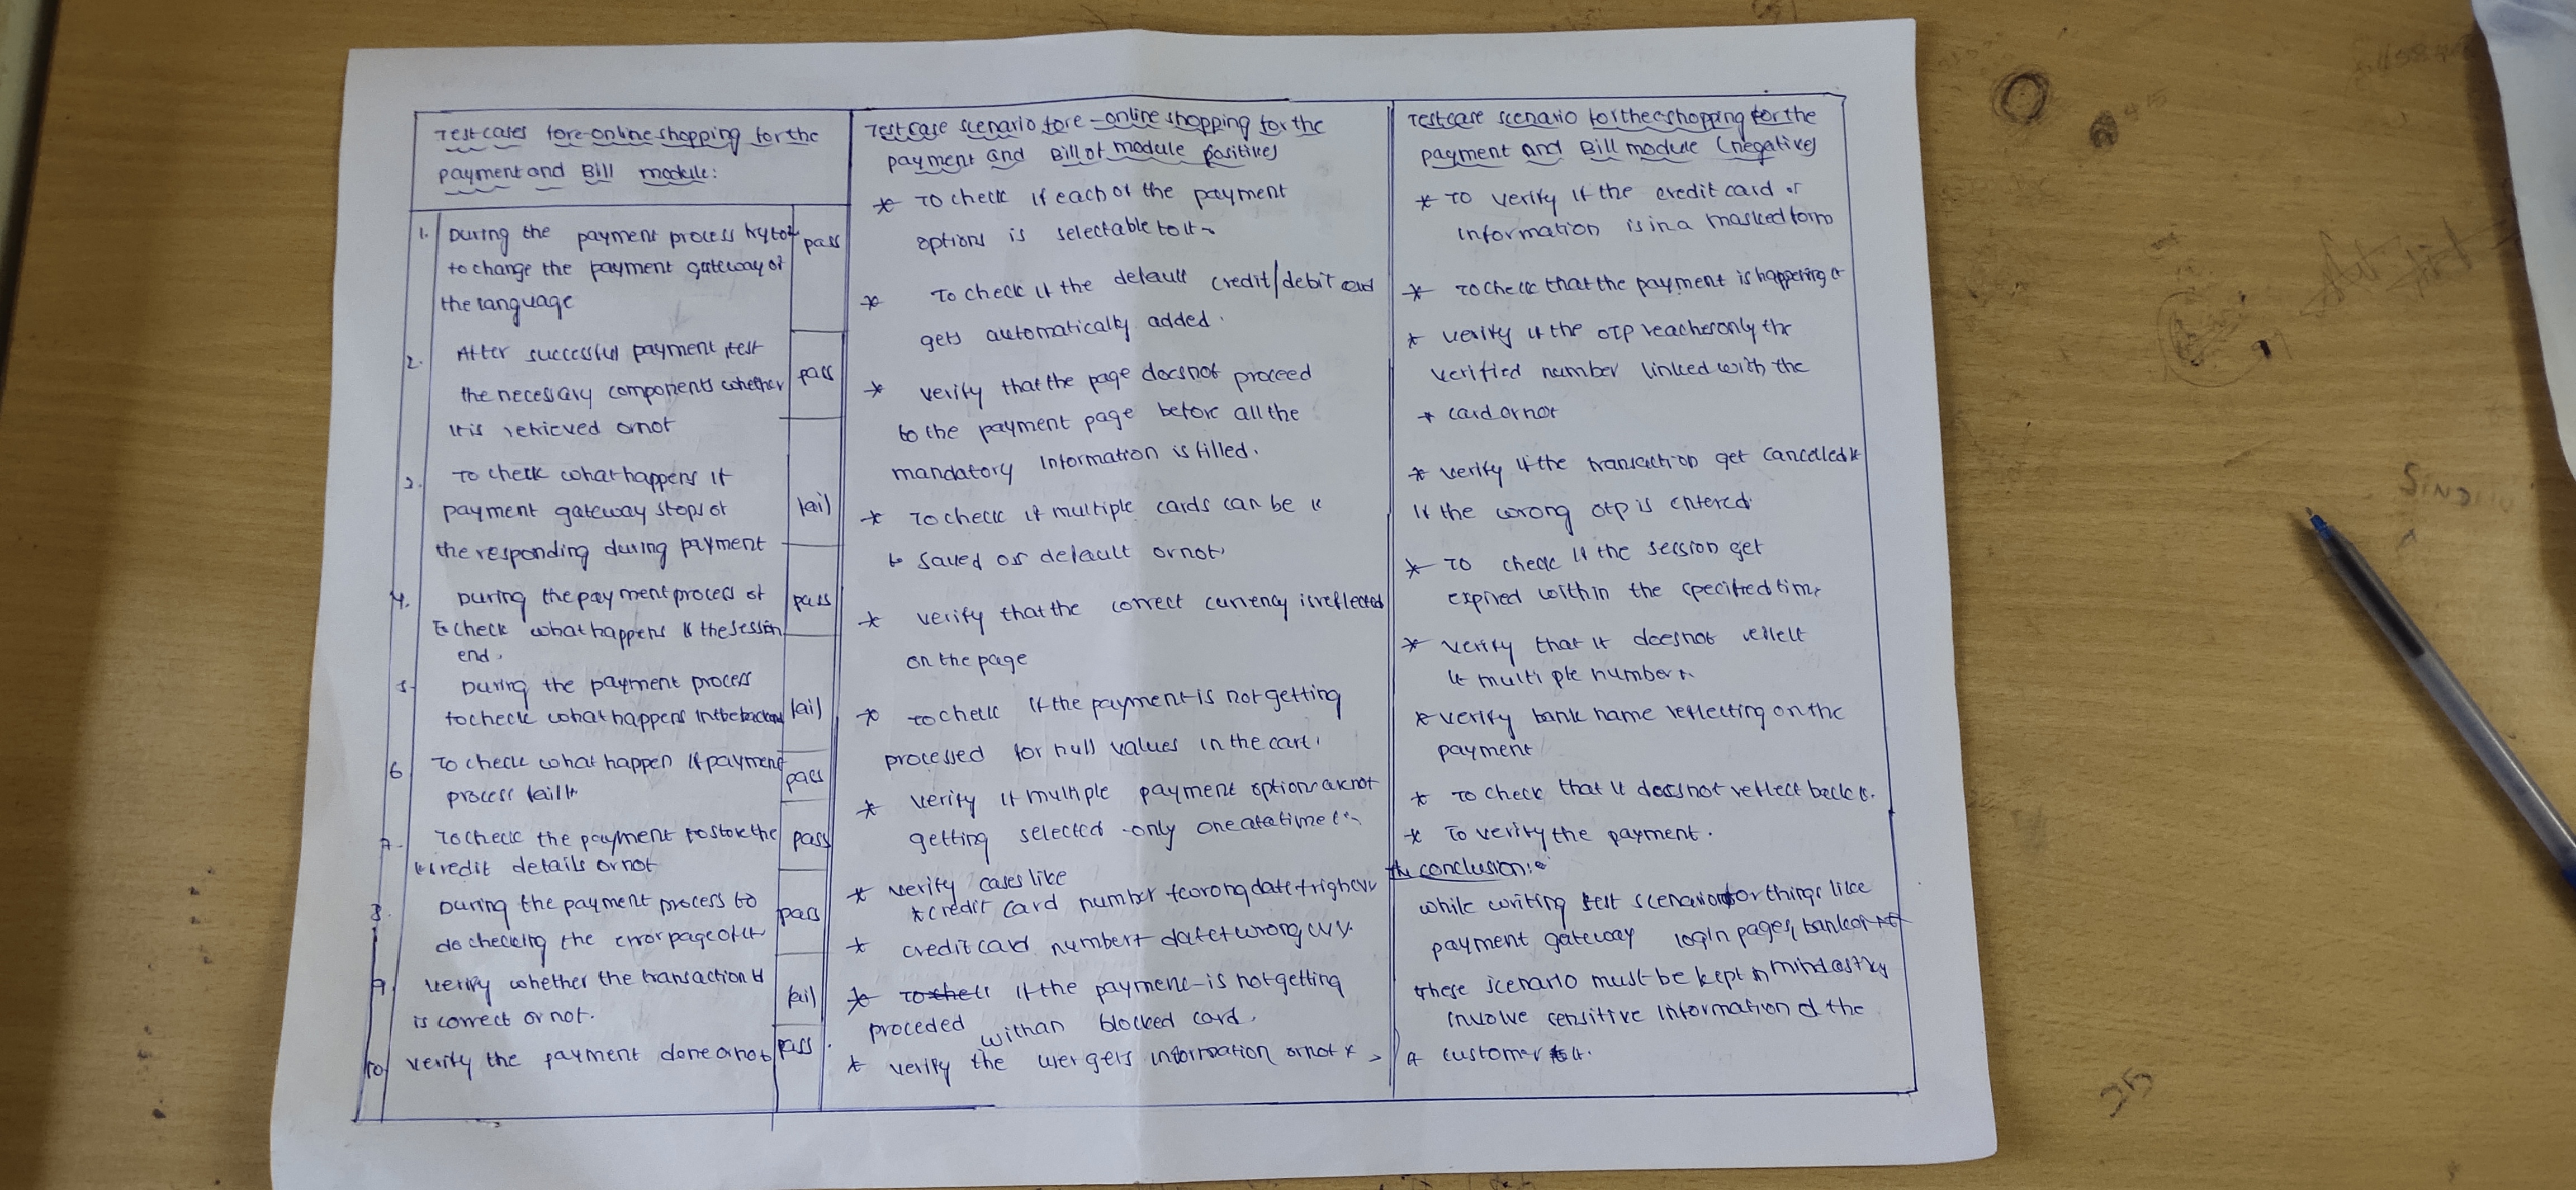 Test cases fore-online shopping for the
payment and Bill module:
1. During the payment process try to
to change the payment gateway of
the language
pass
2. After successful payment test
the necessary components whether
it is retrieved or not
pass
3. To check what happens if
payment gateway stops of
the responding during payment
fail
4. During the payment process of
To check what happens if the session
end.
pass
5. During the payment process
to check what happens in the backend
fail
6. To check what happen if payment
process fail
pass
7. To check the payment to store the
credit details or not
pass
8. During the payment process to
do checking the error page of it
pass
9. Verify whether the transaction
is correct or not.
fail
10. Verify the payment done or not
pass
Test case scenario fore-online shopping for the
payment and Bill of module positives
* To check if each of the payment
option is selectable
* To check if the default credit/debit card
gets automatically added.
* verify that the page does not proceed
to the payment page before all the
mandatory information is filled.
* To check if multiple cards can be
saved or default or not.
* verify that the correct currency is reflected
on the page
* to check if the payment is not getting
processed for null values in the cart.
* verify if multiple payment options are not
getting selected only one at a time
* verify cases like
* credit card number + wrong date + right cvv
* credit card number + date + wrong cvv.
* if the payment is not getting
proceeded with an blocked card.
* verify the user gets information or not
Test case scenario for the eshopping for the
payment and Bill module (negatives
* To verify if the credit card
information is in a masked form
* To check that the payment is happening
* verify if the OTP reaches only the
verified number linked with the
* card or not
* verify if the transaction get cancelled
if the wrong otp is entered
* To check if the session get
expired within the specified time
* verify that it does not
multiple number
* verify bank name reflecting on the
payment
* To check that it does not reflect back
* To verify the payment.
conclusion:
while writing test scenario for things like
payment gateway login pages, bank
these scenario must be kept in mind as they
involve sensitive information of the
customer